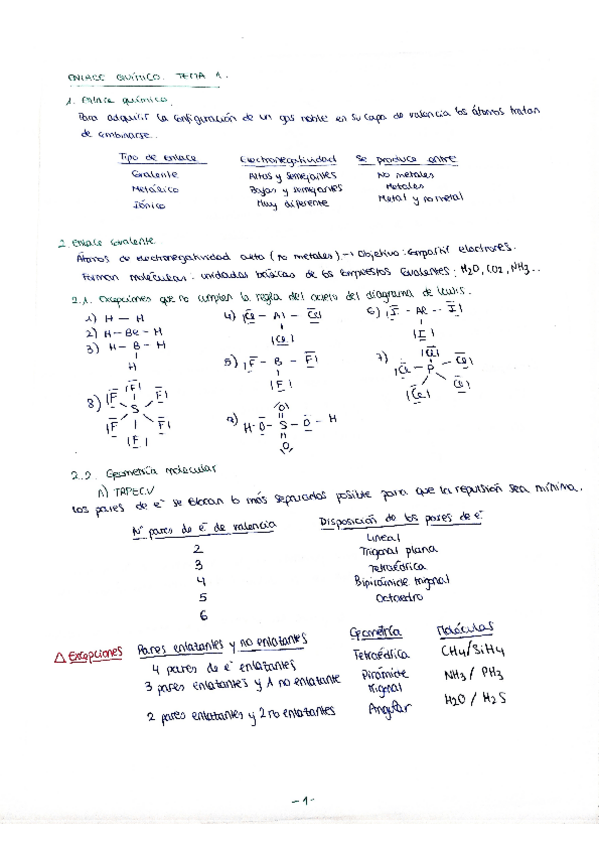 ENLACE QUÍMICO. TEMA 1.
1. Enlace químico.
Para adquirir la configuración de un gas noble en su capa de valencia los átomos tratan
de combinarse.
Tipo de enlace Electronegatividad Se produce entre
Covalente Altas y semejantes No metales
Metálico Bajas y semejantes Metales
Iónico Muy diferente Metal y no metal
2. Enlace covalente
Átomos de electronegatividad alta (no metales) → Objetivo: compartir electrones.
Forman moléculas: unidades básicas de los compuestos covalentes: H2O, CO2, NH3...
2.1. Excepciones que no cumplen la regla del octeto del diagrama de Lewis.
1) H — H
2) H — Be — H
3) H — B — H
H
4) Cl — Al — Cl
Cl
5) F — B — F
F
6) I — Al — I
I
7) Cl Cl P Cl Cl Cl
8) F F F S F F F
9) H — O — S — O — H
O
O
2.2. Geometría molecular
1) TRPECV
Los pares de e⁻ se colocan lo más separados posible para que la repulsión sea mínima.
Nº pares de e⁻ de valencia Disposición de los pares de e⁻
2 Lineal
3 Trigonal plana
4 Tetraédrica
5 Bipirámide trigonal
6 Octaedro
△ Excepciones Pares enlazantes y no enlazantes Geometría Moléculas
4 pares de e⁻ enlazantes Tetraédrica CH4/SiH4
3 pares enlazantes y 1 no enlazante Pirámide trigonal NH3/PH3
2 pares enlazantes y 2 no enlazantes Angular H2O/H2S
-1-